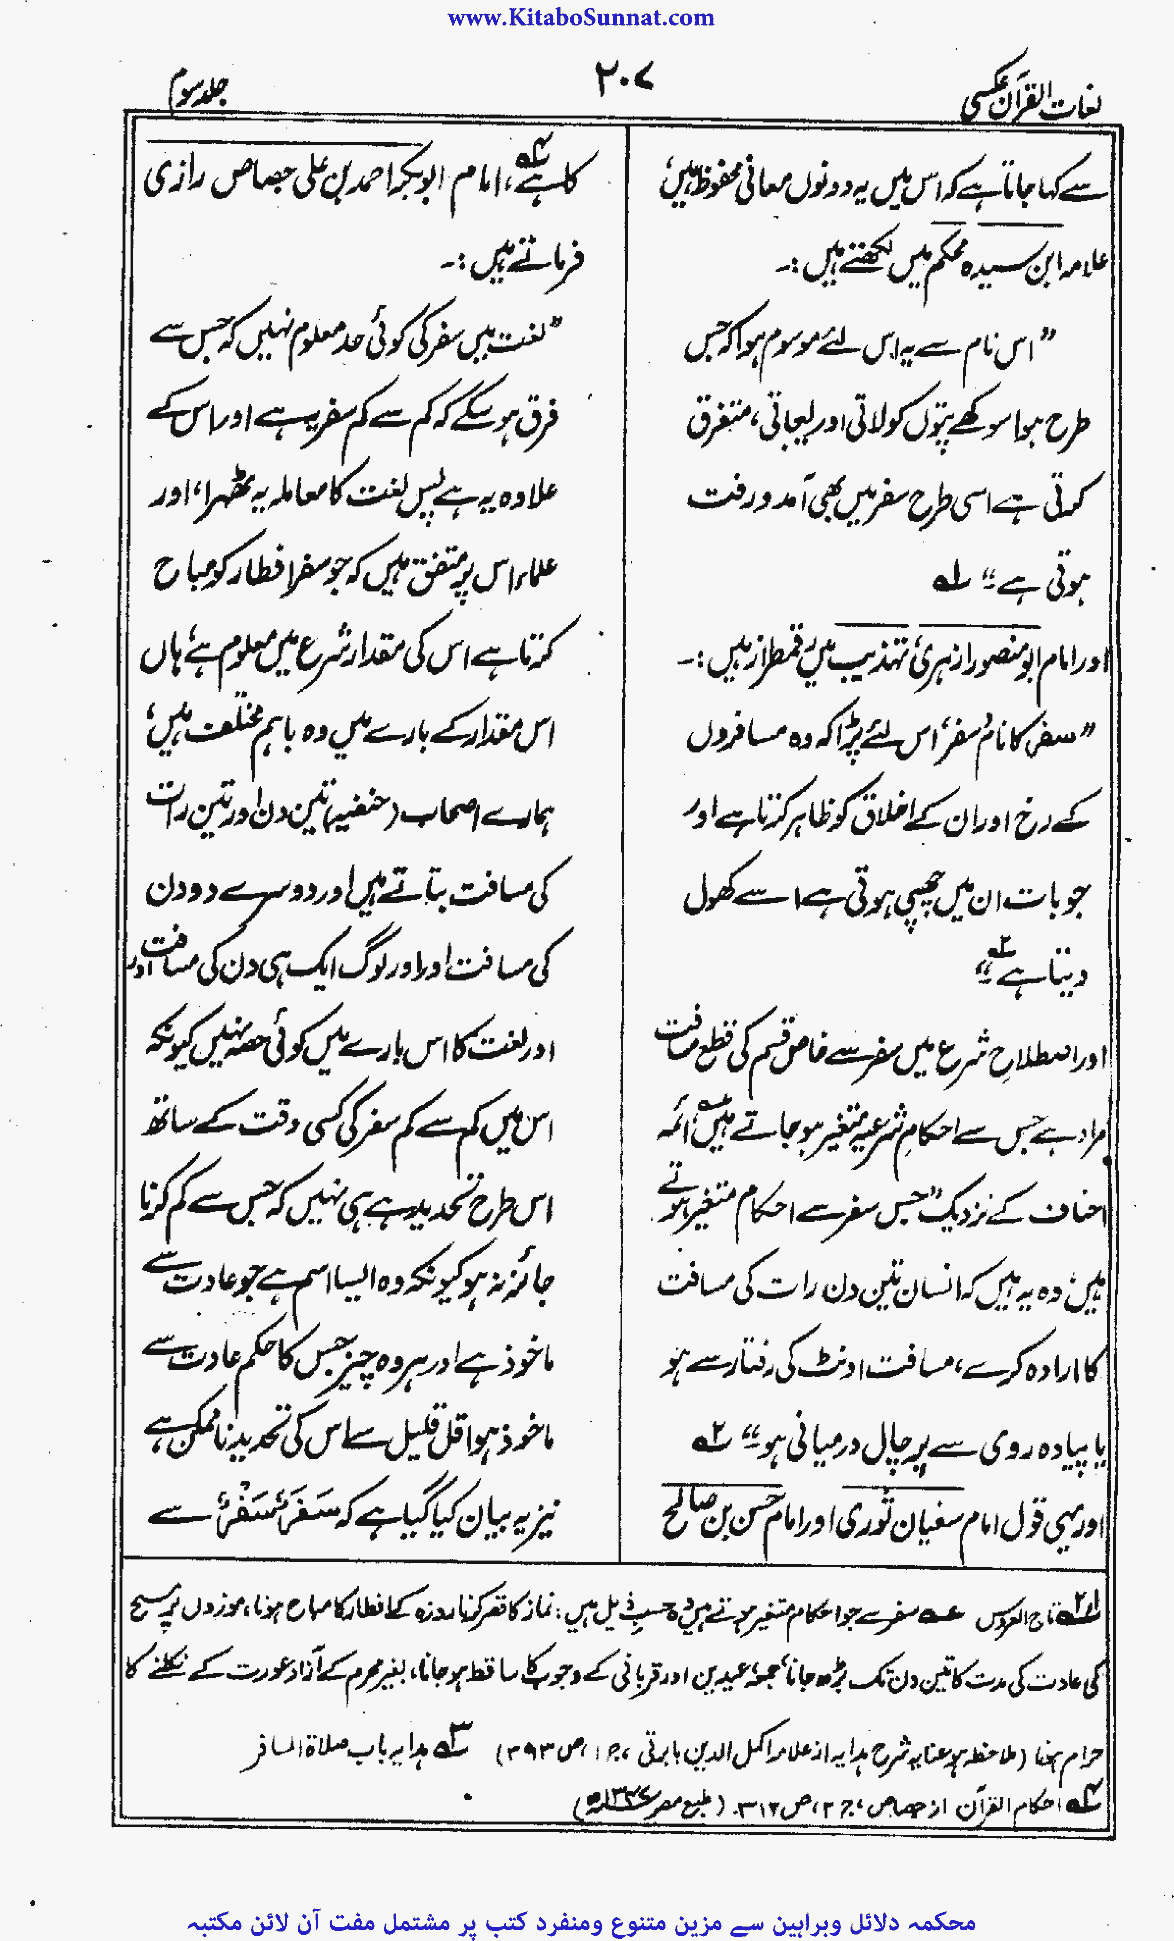 www.KitaboSunnat.com
لغات القرآن عکسی
۲۰۷
جلد سوم
سے کہا جاتا ہے کہ اس میں یہ دونوں معانی محفوظ ہیں،
علامہ ابن سیدہ محکم میں لکھتے ہیں:۔
”اس نام سے یہ اس لئے موسوم ہوا کہ جس
طرح ہوا سوکھے پتوں کو لاتی اور لیجاتی، متفرق
کرتی ہے اسی طرح سفر میں بھی آمد و رفت
ہوتی ہے“ ؎۱
اور امام ابو منصور ازہری، تہذیب میں رقمطراز ہیں:۔
”سفر کا نام سفر اس لئے پڑا کہ وہ مسافروں
کے رخ اور ان کے اخلاق کو ظاہر کرتا ہے اور
جو بات ان میں چھپی ہوتی ہے اسے کھول
دیتا ہے“ ؎۲
اور اصطلاحِ شرع میں سفر سے خاص قسم کی قطع مسافت
مراد ہے جس سے احکامِ شرعیہ متغیر ہو جاتے ہیں؎ ائمہ
احناف کے نزدیک ”جس سفر سے احکام متغیر ہوتے
ہیں، وہ یہ ہیں کہ انسان تین دن رات کی مسافت
کا ارادہ کرے، مسافت اونٹ کی رفتار سے ہو
یا پیادہ روی سے پر چال درمیانی ہو“ ؎۲
اور یہی قول امام سفیان ثوری اور امام حسن بن صالح
کا ہے؎۴، امام ابوبکر احمد بن علی جصاص رازی
فرماتے ہیں:۔
”لغت میں سفر کی کوئی حد معلوم نہیں کہ جس سے
فرق ہو سکے کہ کم سے کم سفر یہ ہے اور اس کے
علاوہ یہ ہے پس لغت کا معاملہ یہ ٹھہرا، اور
علماء اس پر متفق ہیں کہ جو سفر افطار کو مباح
کرتا ہے اس کی مقدار شرع میں معلوم ہے، ہاں
اس مقدار کے بارے میں وہ باہم مختلف ہیں،
ہمارے اصحاب (حنفیہ) تین دن اور تین رات
کی مسافت بتاتے ہیں اور دوسرے دو دن
کی مسافت اور اور لوگ ایک ہی دن کی مسافت اور
اور لغت کا اس بارے میں کوئی حصہ نہیں کیونکہ
اس میں کم سے کم سفر کی کسی وقت کے ساتھ
اس طرح تحدید ہے ہی نہیں کہ جس سے کم کرنا
جائز نہ ہو کیونکہ وہ ایسا اسم ہے جو عادت سے
ماخوذ ہے اور ہر وہ چیز جس کا حکم عادت سے
ماخوذ ہو اقل قلیل سے اس کی تحدید ناممکن ہے،
نیز یہ بیان کیا گیا ہے کہ سَفَر، سَفْر سے
؎۱؎۲ تاج العروس ؎ سفر سے جو احکام متغیر ہوتے ہیں وہ حسبِ ذیل ہیں: نماز کا قصر کرنا، روزہ کے افطار کا مباح ہونا، موزوں پر مسح
کی عادت کی مدت کا تین دن تک بڑھ جانا، جمعہ، عیدین اور قربانی کے وجوب کا ساقط ہو جانا، بغیر محرم کے آزاد عورت کے نکلنے کا
حرام ہونا (ملاحظہ ہو عنایہ شرح ہدایہ از علامہ اکمل الدین بابرتی، ج ۱، ص ۳۹۳) ؎۳ ہدایہ باب صلاۃ المسافر
؎۴ احکام القرآن از جصاص، ج ۲، ص ۳۱۲. (طبع مصر)
محکمہ دلائل وبراہین سے مزین متنوع ومنفرد کتب پر مشتمل مفت آن لائن مکتبہ